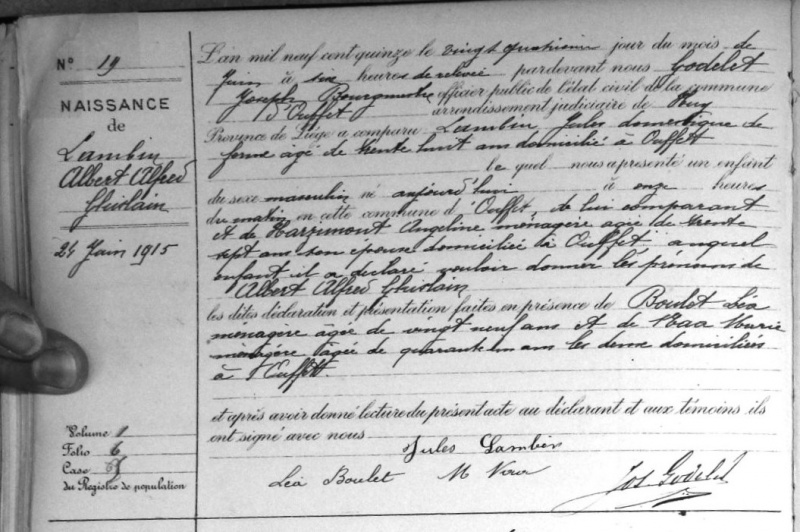 N° 19
NAISSANCE
de
Lambin
Albert Alfred
Ghislain
24 Juin 1915
Volume 1
Folio 6
Case
du Registre de population
L'an mil neuf cent quinze le vingt quatrième jour du mois de
Juin à six heures de relevée pardevant nous Godelet
Joseph Bourgmestre officier public de l'état civil de la commune
d'Ouffet arrondissement judiciaire de Huy
Province de Liége a comparu Lambin Jules domestique de
ferme âgé de trente huit ans domicilié à Ouffet
le quel nous a présenté un enfant
du sexe masculin né aujourd'hui à onze heures
du matin en cette commune d'Ouffet, de lui comparant
et de Harzimont Angeline ménagère agée de trente
sept ans son épouse domiciliée à Ouffet, auquel
enfant il a déclaré vouloir donner les prénoms de
Albert Alfred Ghislain
les dites déclaration et présentation faites en présence de Boulet Léa
ménagère âgée de vingt neuf ans et de Marie
ménagère âgée de quarante un ans les deux domiciliées
à Ouffet.
et après avoir donné lecture du présent acte au déclarant et aux témoins ils
ont signé avec nous
Jules Lambin
Léa Boulet M
Jos Godelet